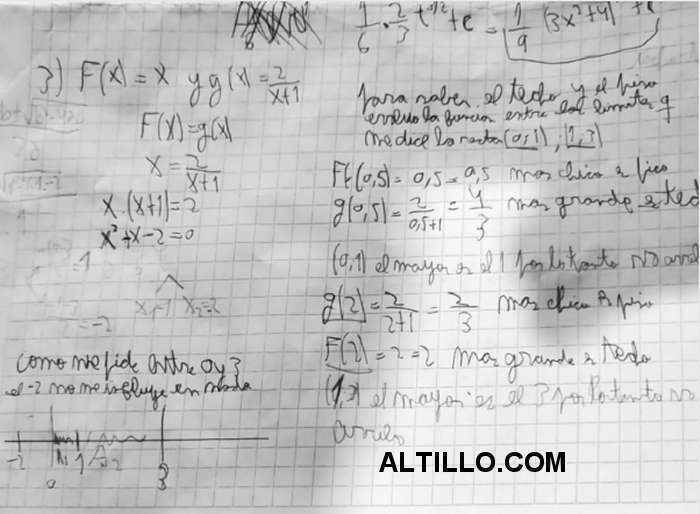 1/6 · 2/3 + c = 1/9 (3x²+4)
3) F(x) = x y g(x) = 2/(x+1)
F(x) = g(x)
x = 2/(x+1)
x·(x+1) = 2
x²+x-2 = 0
x₂=2
= -2
como me pide entre 0 y 3
el -2 no me influye en nada
-2 0 1 3
A₁ A₂
para saber el techo y el piso
evaluo la funcion entre los
me dice la recta (0,1), (1,3)
F(0,5) = 0,5 = 0,5 mas chico piso
g(0,5) = 2/(0,5+1) = 4/3 mas grande
(0,1) el mayor es el 1 por lo tanto no
g(2) = 2/(2+1) = 2/3 mas chico piso
F(2) = 2 = 2 mas grande techo
el mayor es el 3 por lo tanto no
ALTILLO.COM